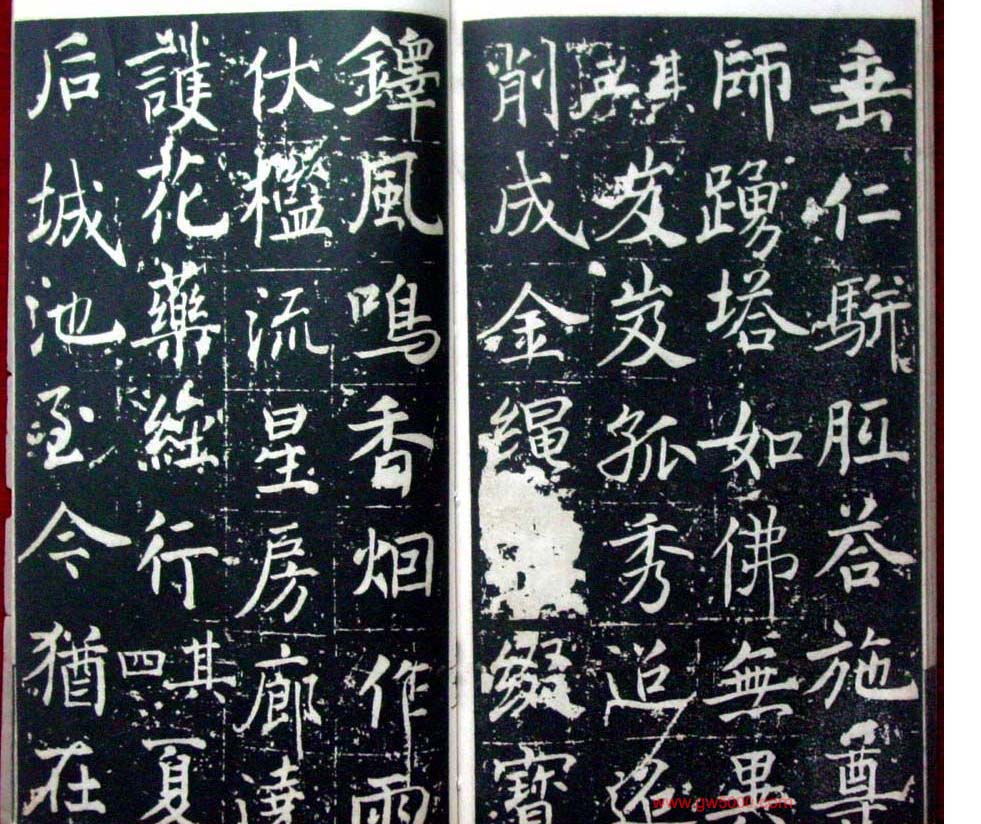 垂仁駢胝荅施尊
師踴塔如佛無異
其三岌岌孤秀迢迢
削成金繩綴寶
鐸風鳴香烟作雨
伏檻流星房廊遶
護花藥經行其四夏
后城池至今猶在